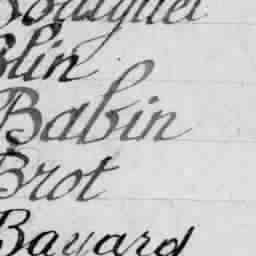 Bouquet
Blin
Babin
Brot
Bayard